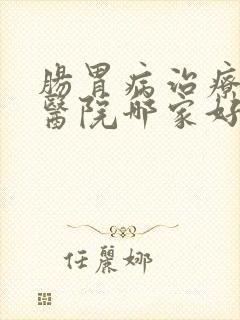 腸胃病治療
醫院哪家好
任麗娜